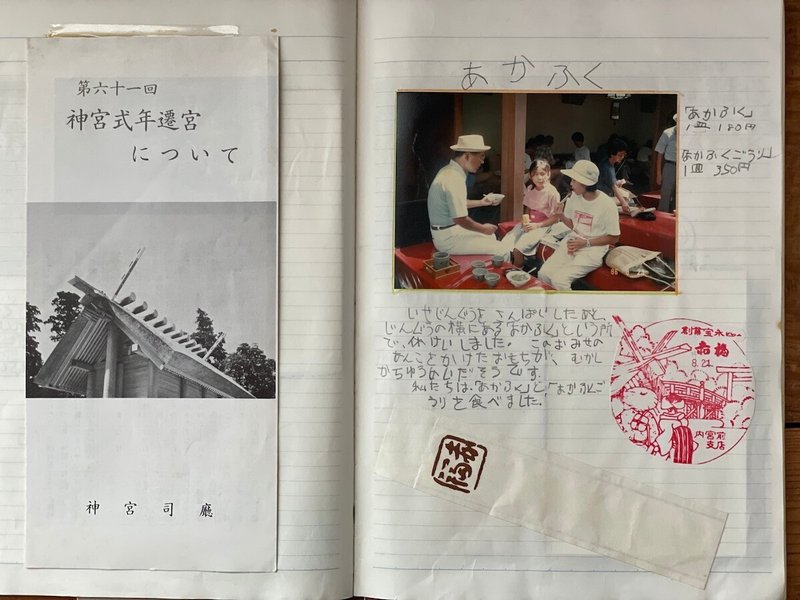 第六十一回
神宮式年遷宮
について
神宮司廳
あかふく
「あかふく」
1皿 180円
「あかふくごうり」
1皿 350円
じんぐうをさんぱいしたあと
じんぐうの横にある「あかふく」という所
で、休けいしました。このおみせの
あんこをかけたおもちが、むかし
からゆうめいだそうです。
私たちは「あかふく」と「あかふくご
うり」を食べました。
創業宝永
赤福
8.21
内宮前
支店